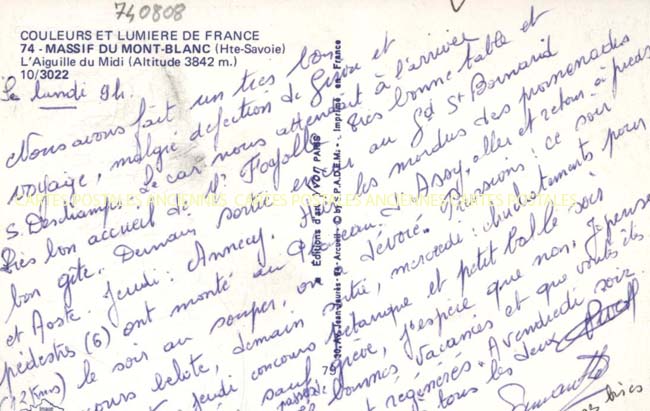 740808
COULEURS ET LUMIERE DE FRANCE
74 - MASSIF DU MONT-BLANC (Hte-Savoie)
L'Aiguille du Midi (Altitude 3842 m.)
10/3022
Le lundi 9h.
Nous avons fait un très bon
voyage, malgré défection de et
S. Deschamps. Le car nous attendait à l'arrivée
Très bon accueil de Mr Fayolle très bonne table et
bon gîte. Demain sortie en car au Gd St Bernard
et Aoste. Jeudi : Annecy. Hier les mordus des promenades
pédestres (6) ont monté au Plateau d'Assy, aller et retour à pieds
(12 kms) le soir au souper, on ce soir
concours belote, demain sortie, mercredi : pour
jeudi concours pétanque et petit balle soir
sauf grève, j'espère que non. Je pense
bonnes vacances et que vous êtes
régénérés. A vendredi soir
tous les deux
CARTES POSTALES ANCIENNES CARTES POSTALES ANCIENNES CARTES POSTALES
Editions d'art Yvon PARIS
Imprimé en France